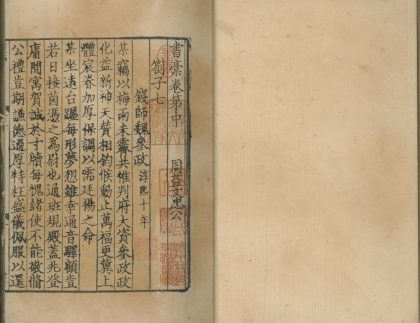 書藁卷第中
周益文忠公
劄子七
餞師魏參政 淳熙十年
某竊以梅雨未霽共惟判府大資參政政
化益新神天賛相鈞候動止萬福更冀上
體宸眷加厚保調以需廷揚之命
某坐遠台躔每形夢想雖幸通音驛顧豈
若日接茵憑之為尉也通班規殿蓋先登
庸間寓賀誠於寸牘每愧緒使不能敬脩
公禮豈期謙德過厚特枉盛儀佩服以還